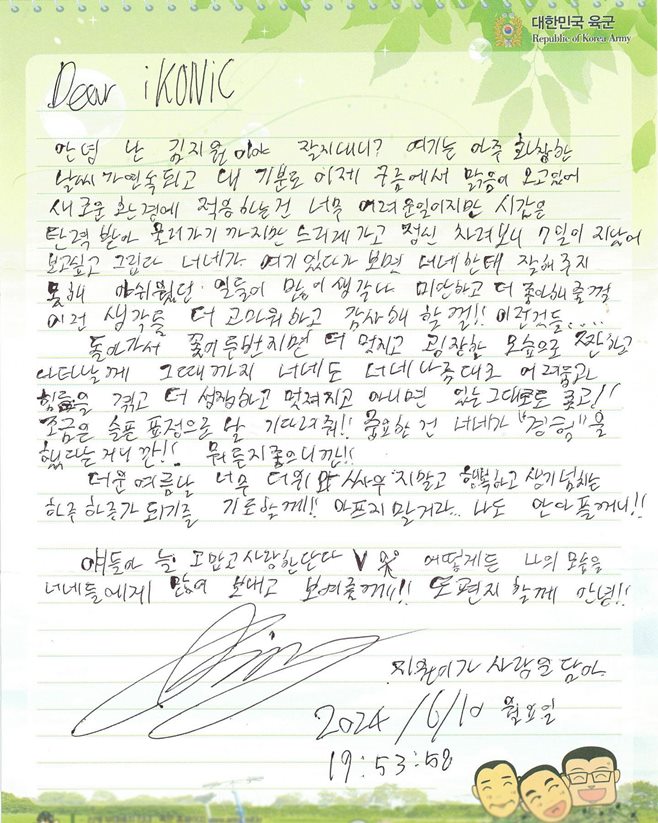 대한민국 육군
Republic of Korea Army
Dear iKONIC
안녕 난 김지원이야 잘지내니? 여기는 아주 화창한
날씨가 연속되고 내 기분도 이제 구름에서 맑음이 오고있어
새로운 환경에 적응하는건 너무 어려운일이지만 시간은
탄력 받아 굴러가기 까지만 느리게 가고 정신 차려보니 7일이 지났어
보고싶고 그립다 너네가 여기 있다가 보면 너네한테 잘해주지
못해 아쉬웠던 일들이 많이 생각나 미안하고 더 좋아해줄껄
이런 생각들 더 고마워하고 감사해 할껄!! 이런것들....
돌아가서 꽃이 두번지면 더 멋지고 굉장한 모습으로 짠하고
나타날게 그때까지 너네도 너네 나름대로 어려움과
힘듦을 겪고 더 성장하고 멋져지고 아니면 있는그대로도 좋고!!
조금은 슬픈 표정으로 날 기다려줘!! 중요한 건 너네가 "경험"을
했다는거니깐!! 뭐든지좋으니깐!!
더운 여름날 너무 더위와 싸우지말고 행복하고 생기넘치는
하루하루가 되기를 기도할게!! 아프지말거라.. 나도 안아플게!!
얘들아 늘 고맙고사랑한단다 V 어떻게든 나의 모습을
너네들에게 많이 보내고 보여줄께!! 또 편지할게 안녕!!
지원이가 사랑을 담아.
2024/6/10 월요일
19:53:58